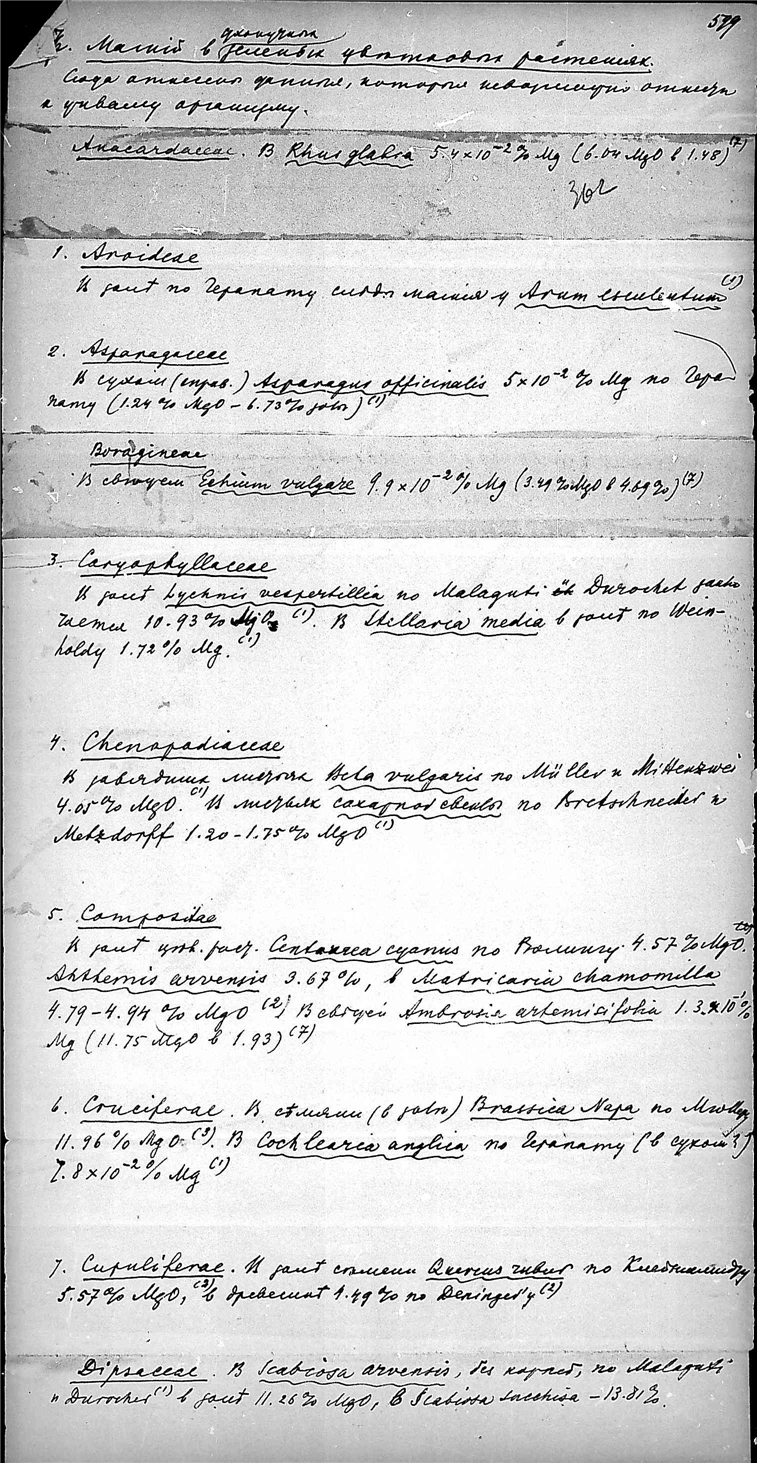 599
двудольных
2. Магний в зеленых цветковых растениях.
Сюда отнесены данные, которые невозможно отнести
к живому организму.
Anacardaceae. В Rhus glabra 5.4×10⁻²% Mg (6.04 MgO в 1.48)⁽⁷⁾
1. Aroideae
В золе по Герапату следы магния у Arum esculentum⁽¹⁾
2. Asparagaceae
В сухом Asparagus officinalis 5×10⁻²% Mg по Гера-
пату (1.24% MgO – 6.73% золы)⁽¹⁾
Boragineae
В свежем Echium vulgare 9.9×10⁻²% Mg (3.49% MgO в 4.69%)⁽⁷⁾
3. Caryophyllaceae
В золе Lychnis vespertillia по Malaguti и Durochet
10.93% MgO ⁽¹⁾. В Stellaria media в золе по Wein-
holdy 1.72% Mg.⁽¹⁾
4. Chenopodiaceae
В листьях Beta vulgaris по Müller и Mittenzwei
4.05% MgO.⁽¹⁾ В листьях сахарной свеклы по Bretschneider и
Metzdorff 1.20–1.75% MgO⁽¹⁾
5. Compositae
В золе цвет. раст. Centaurea cyanus по 4.57% MgO.
Anthemis arvensis 3.67%, в Matricaria chamomilla
4.79–4.94% MgO ⁽²⁾ В свежей Ambrosia artemisifolia 1.3×10⁻¹%
Mg (11.75 MgO в 1.93)⁽⁷⁾
6. Cruciferae. В семени (в золе) Brassica Napa по Мюллеру
11.96% MgO.⁽³⁾ В Cochlearia anglica по Герапату (в сухом?)
7.8×10⁻²% Mg⁽¹⁾
7. Cupuliferae. В золе семени Quercus rubur по
5.57% MgO,⁽³⁾ в древесине 1.49% по Deninger'у⁽²⁾
Dipsaceae. В Scabiosa arvensis, без корней, по Malaguti
и Durochet⁽¹⁾ в золе 11.26% MgO, в Scabiosa succhisa – 13.81%.